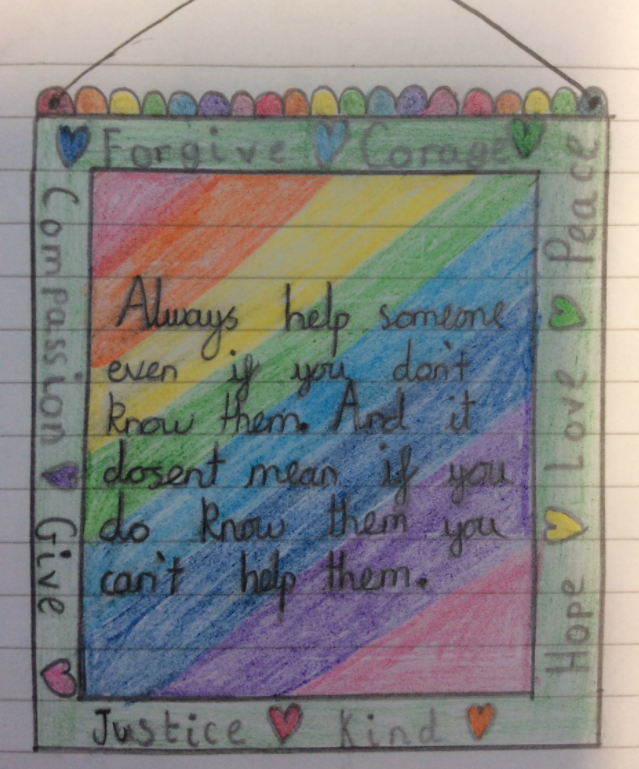 Forgive Corage
Peace
Love
Hope
Compassion
Give
Always help someone
even if you don't
know them. And it
dosent mean if you
do know them you
can't help them.
Justice Kind